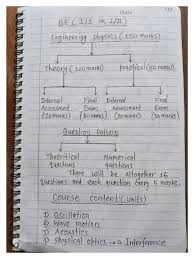 Date
BE (I/I or I/II)
Engineering Physics (150 marks)
Theory (100 marks) Practical (50 marks)
Internal Final Internal Final
Assessment Exam Assessment Exam
(20 marks) (80 marks) (20 marks) (30 marks)
Question Pattern
Theoritical Numerical
Questions Questions
There will be altogether 16
questions and each question carry 5 marks.
Course content (units)
1) Oscillation
2) Wave motion
3) Acoustics
4) Physical optics → Interference